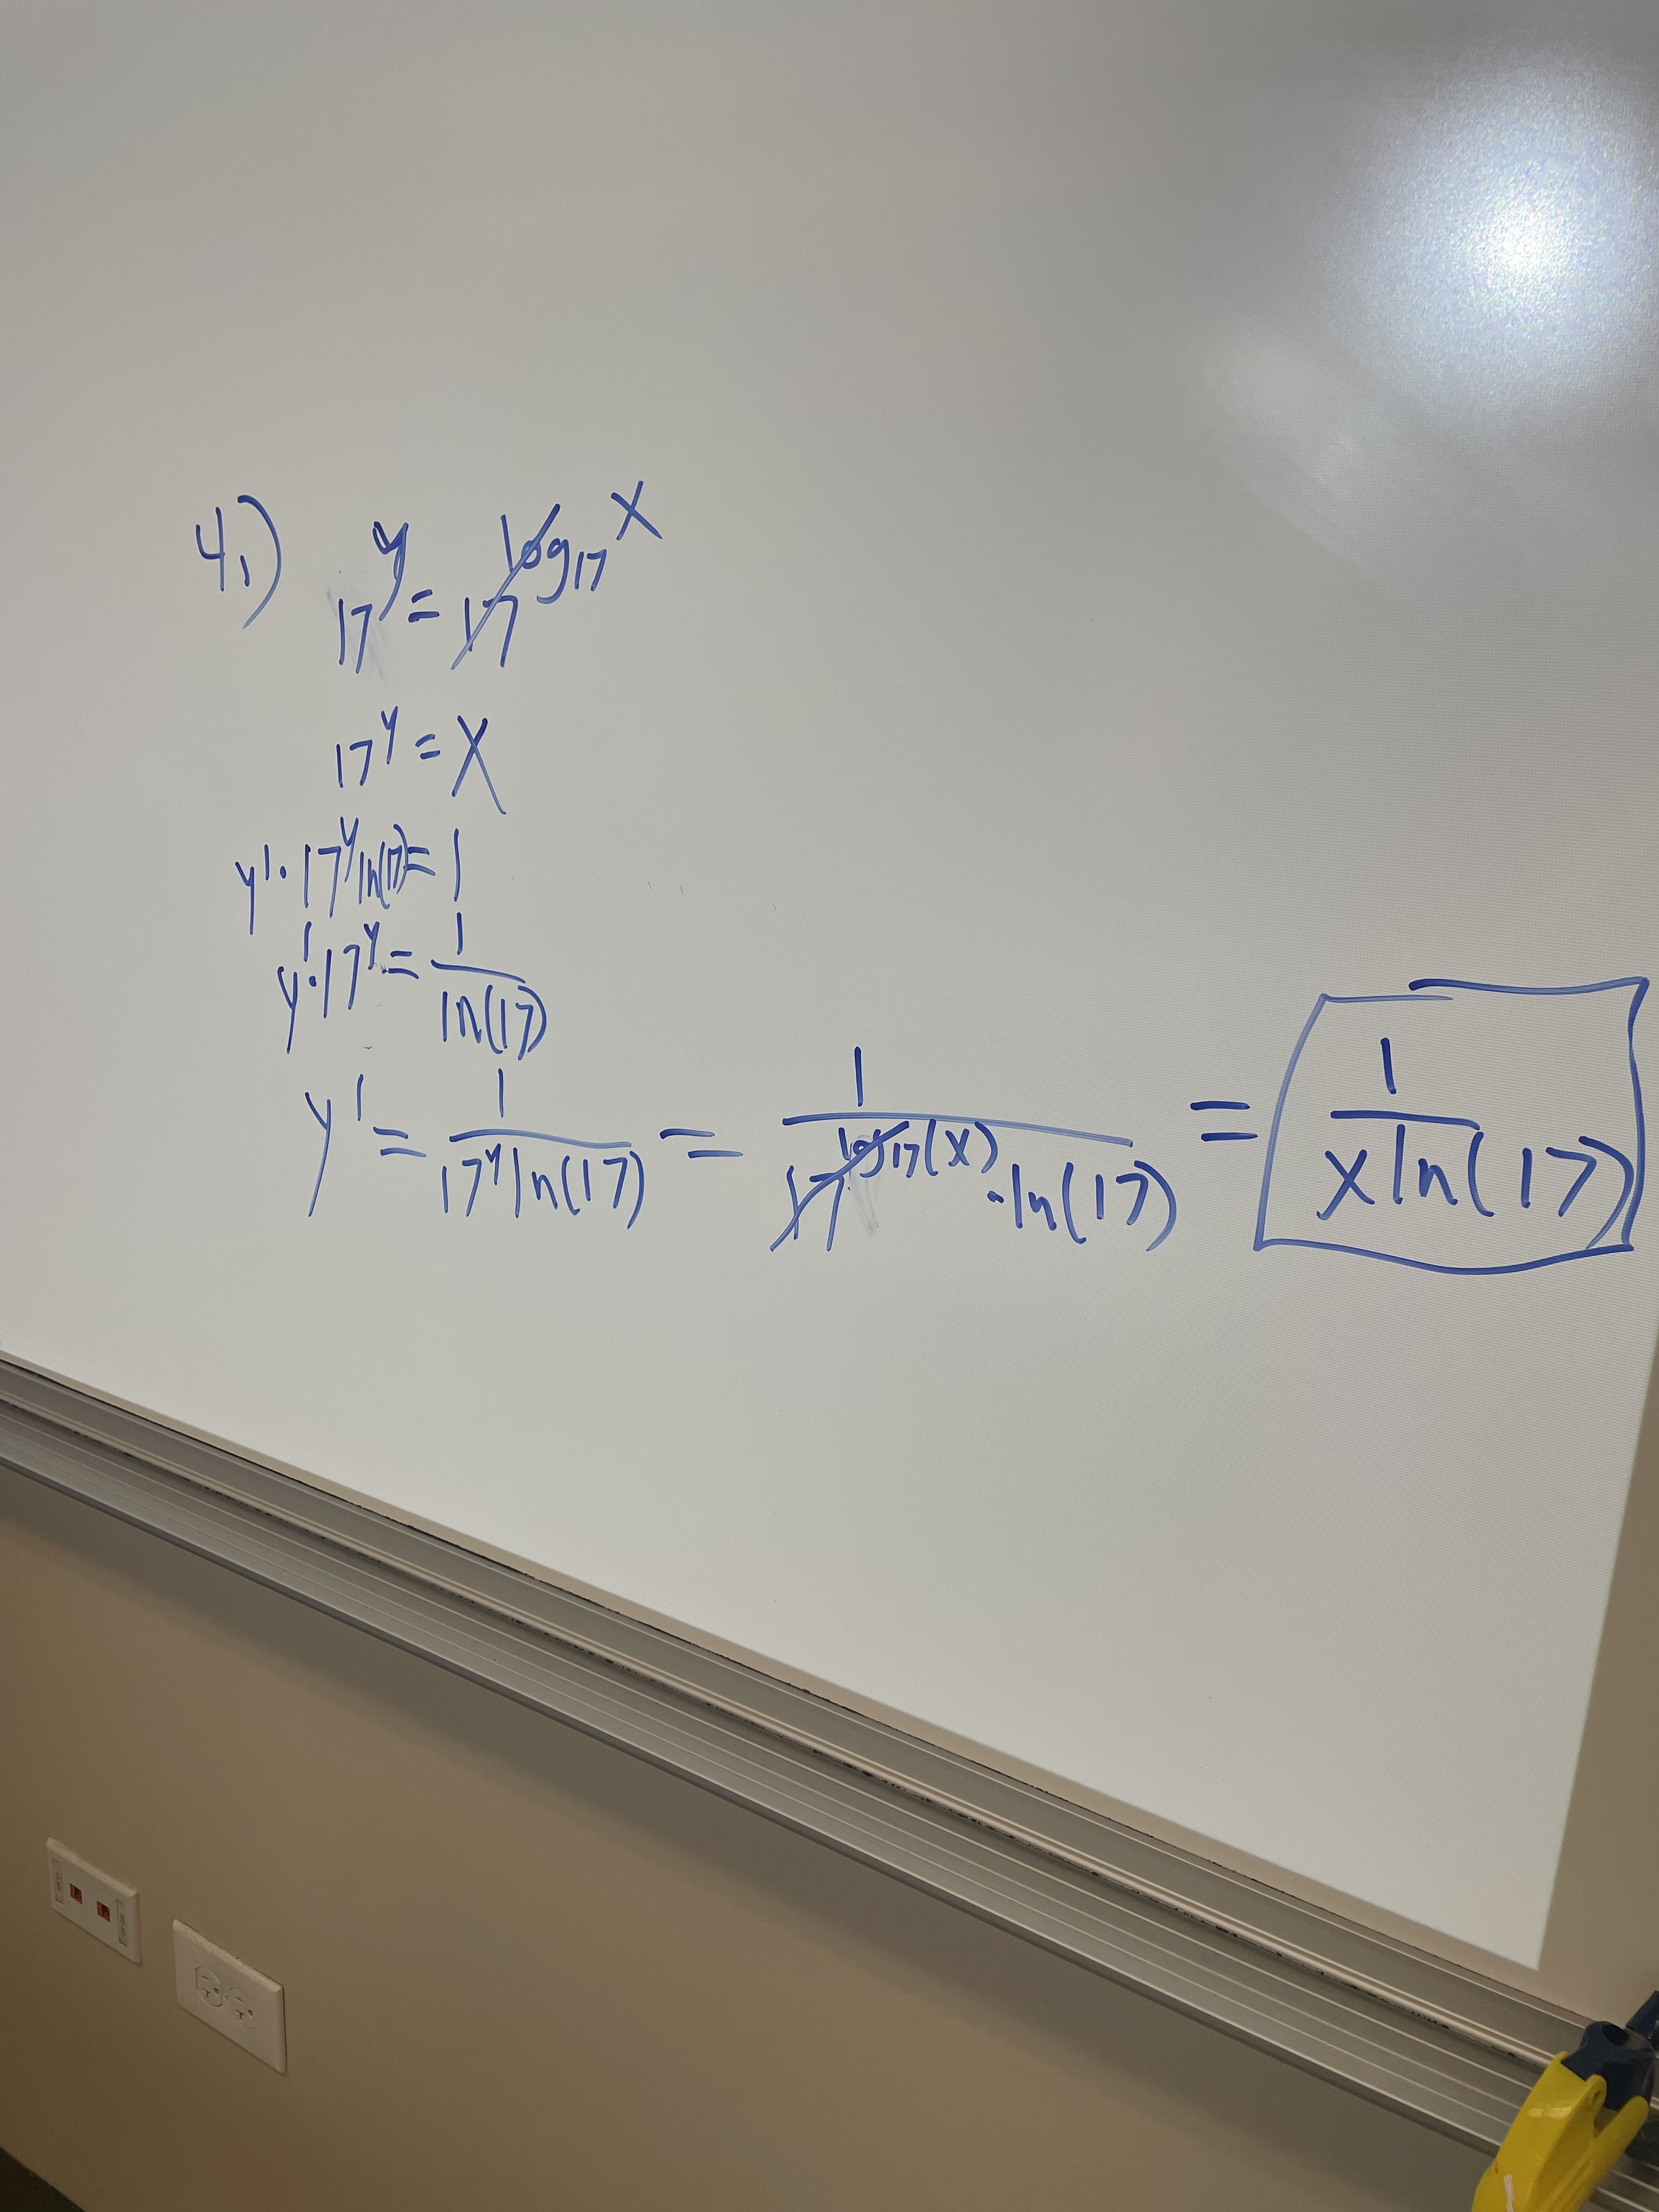 4.) 17^y = 17^log₁₇ x
17^y = x
y' · 17^y ln(17) = 1
y' · 17^y = 1/ln(17)
y' = 1/17^y ln(17) = 1/17^log₁₇(x) · ln(17) = 1/x ln(17)